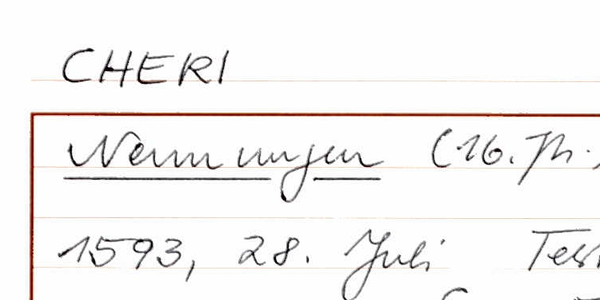 CHERI
Nennungen (16. Jh.
1593, 28. Juli Test